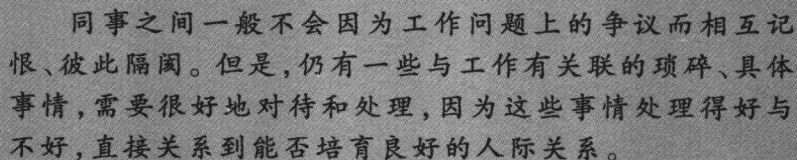 同事之间一般不会因为工作问题上的争议而相互记
恨、彼此隔阂。但是,仍有一些与工作有关联的琐碎、具体
事情,需要很好地对待和处理,因为这些事情处理得好与
不好,直接关系到能否培育良好的人际关系。